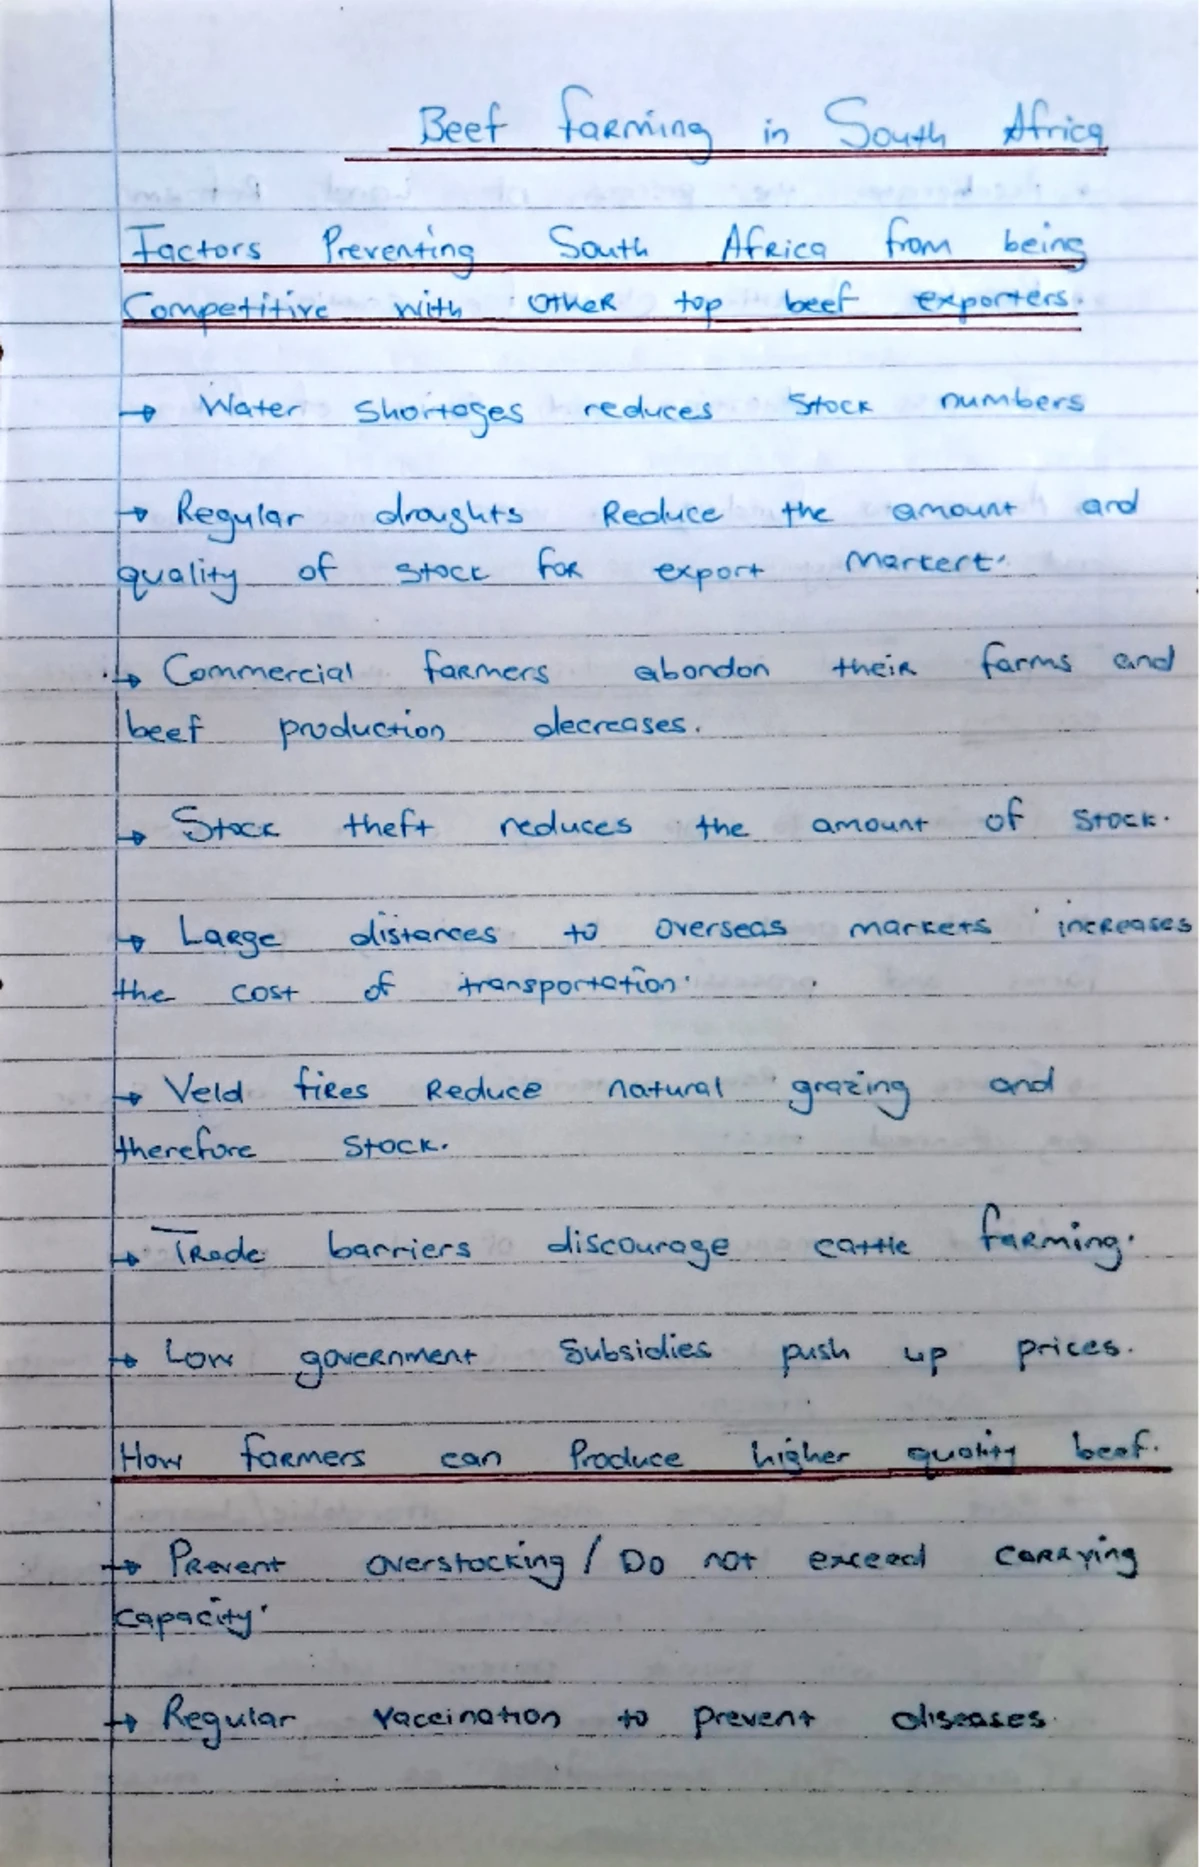 Beef farming in South Africa
Factors Preventing South Africa from being
Competitive with other top beef exporters.
→ Water shortages reduces stock numbers
→ Regular droughts reduce the amount and
quality of stock for export markert.
→ Commercial farmers abondon their farms and
beef production decreases.
→ Stock theft reduces the amount of stock.
→ Large distances to overseas markets increases
the cost of transportation.
→ Veld fires reduce natural grazing and
therefore stock.
→ Trade barriers discourage cattle farming.
→ Low government subsidies push up prices.
How farmers can produce higher quality beef.
→ Prevent overstocking / Do not exceed carrying
capacity.
→ Regular vaccination to prevent diseases.